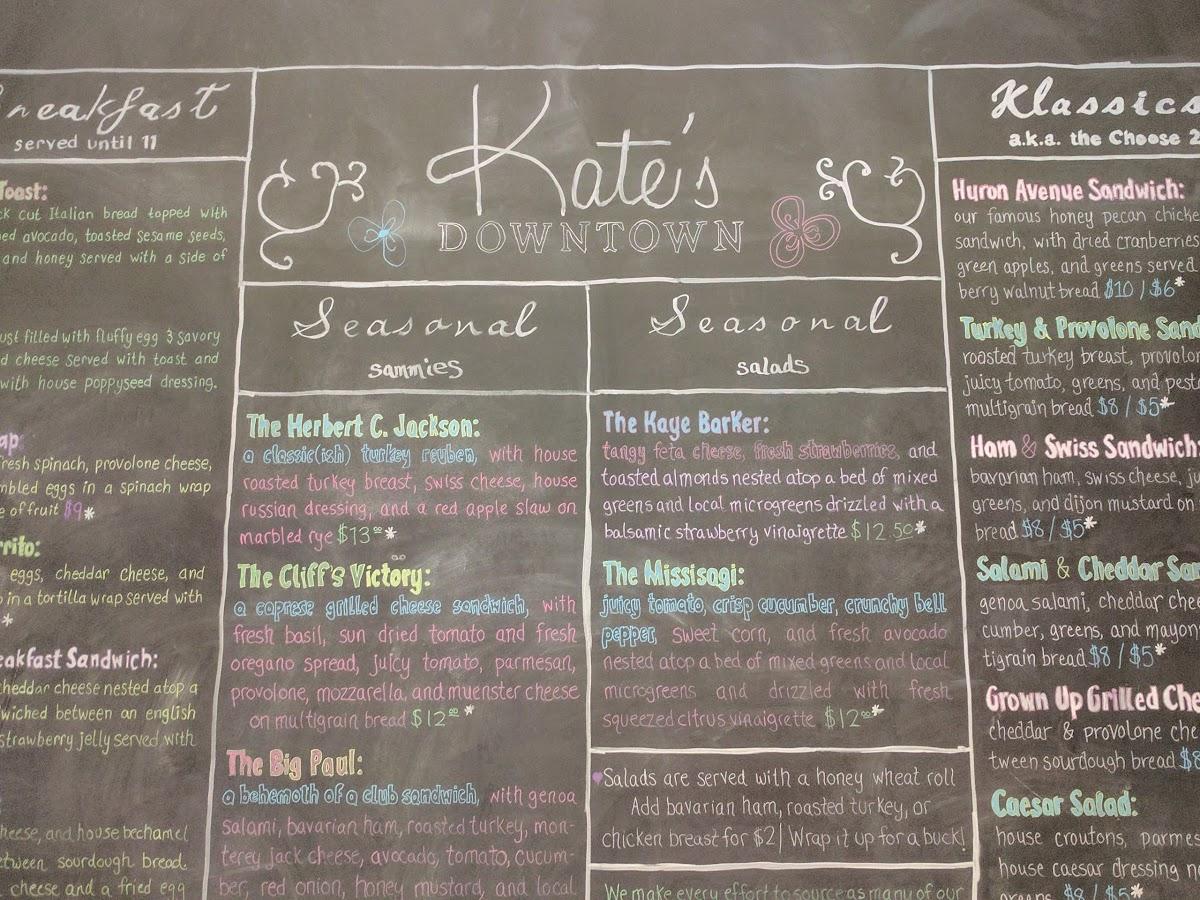 Breakfast
served until 11
Toast:
ck cut Italian bread topped with
ed avocado, toasted sesame seeds,
and honey served with a side of
ust filled with fluffy egg 3 savory
d cheese served with toast and
with house poppyseed dressing.
ap:
resh spinach, provolone cheese,
mbled eggs in a spinach wrap
e of fruit $9*
rrito:
eggs, cheddar cheese, and
o in a tortilla wrap served with
*
eakfast Sandwich:
cheddar cheese nested atop a
wiched between an english
strawberry jelly served with
heese, and house bechamel
etween sourdough bread.
cheese and a fried egg
Kate's
DOWNTOWN
Seasonal
sammies
The Herbert C. Jackson:
a classic(ish) turkey reuben, with house
roasted turkey breast, swiss cheese, house
russian dressing, and a red apple slaw on
marbled rye $13.00*
The Cliff's Victory:
a caprese grilled cheese sandwich, with
fresh basil, sun dried tomato and fresh
oregano spread, juicy tomato, parmesan,
provolone, mozzarella, and muenster cheese
on multigrain bread $12.00*
The Big Paul:
a behemoth of a club sandwich, with genoa
salami, bavarian ham, roasted turkey, mon-
terey jack cheese, avocado, tomato, cucum-
ber, red onion, honey mustard, and local
Seasonal
salads
The Kaye Barker:
tangy feta cheese, fresh strawberries, and
toasted almonds nested atop a bed of mixed
greens and local microgreens drizzled with a
balsamic strawberry vinaigrette $12.50*
The Missisagi:
juicy tomato, crisp cucumber, crunchy bell
pepper, sweet corn, and fresh avocado
nested atop a bed of mixed greens and local
microgreens and drizzled with fresh
squeezed citrus vinaigrette $12.00*
Salads are served with a honey wheat roll
Add bavarian ham, roasted turkey, or
chicken breast for $2| Wrap it up for a buck!
We make every effort to source as many of our
Klassics
a.k.a. the Choose 2
Huron Avenue Sandwich:
our famous honey pecan chicke
sandwich, with dried cranberries
green apples, and greens served
berry walnut bread $10 / $6*
Turkey & Provolone Sand
roasted turkey breast, provolon
juicy tomato, greens, and pest
multigrain bread $8 / $5*
Ham & Swiss Sandwich:
bavarian ham, swiss cheese, ju
greens, and dijon mustard on
bread $8 / $5*
Salami & Cheddar San
genoa salami, cheddar chee
cumber, greens, and mayon
tigrain bread $8 / $5*
Grown Up Grilled Che
cheddar & provolone che
tween sourdough bread $8
Caesar Salad:
house croutons, parmes
house caesar dressing ne
greens $8 / $5*